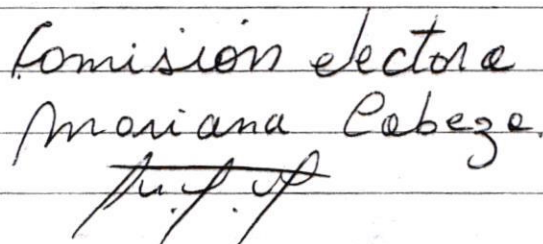 Comisión electora
Mariana Cabeza